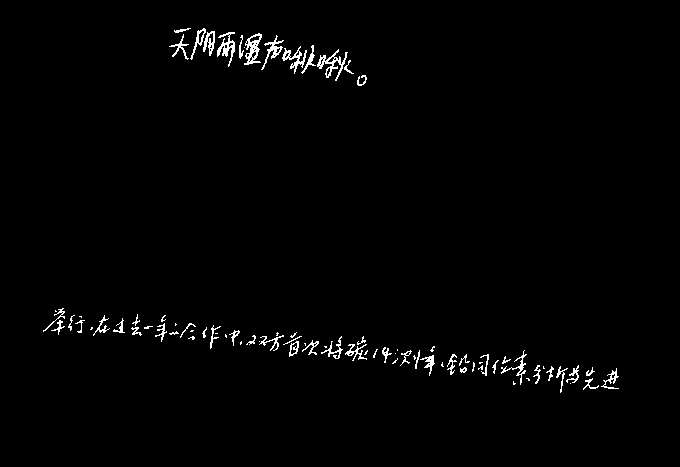 天阴雨湿声啾啾。
举行,在过去一年的合作中,双方首次将碳14测年、铅同位素分析等先进